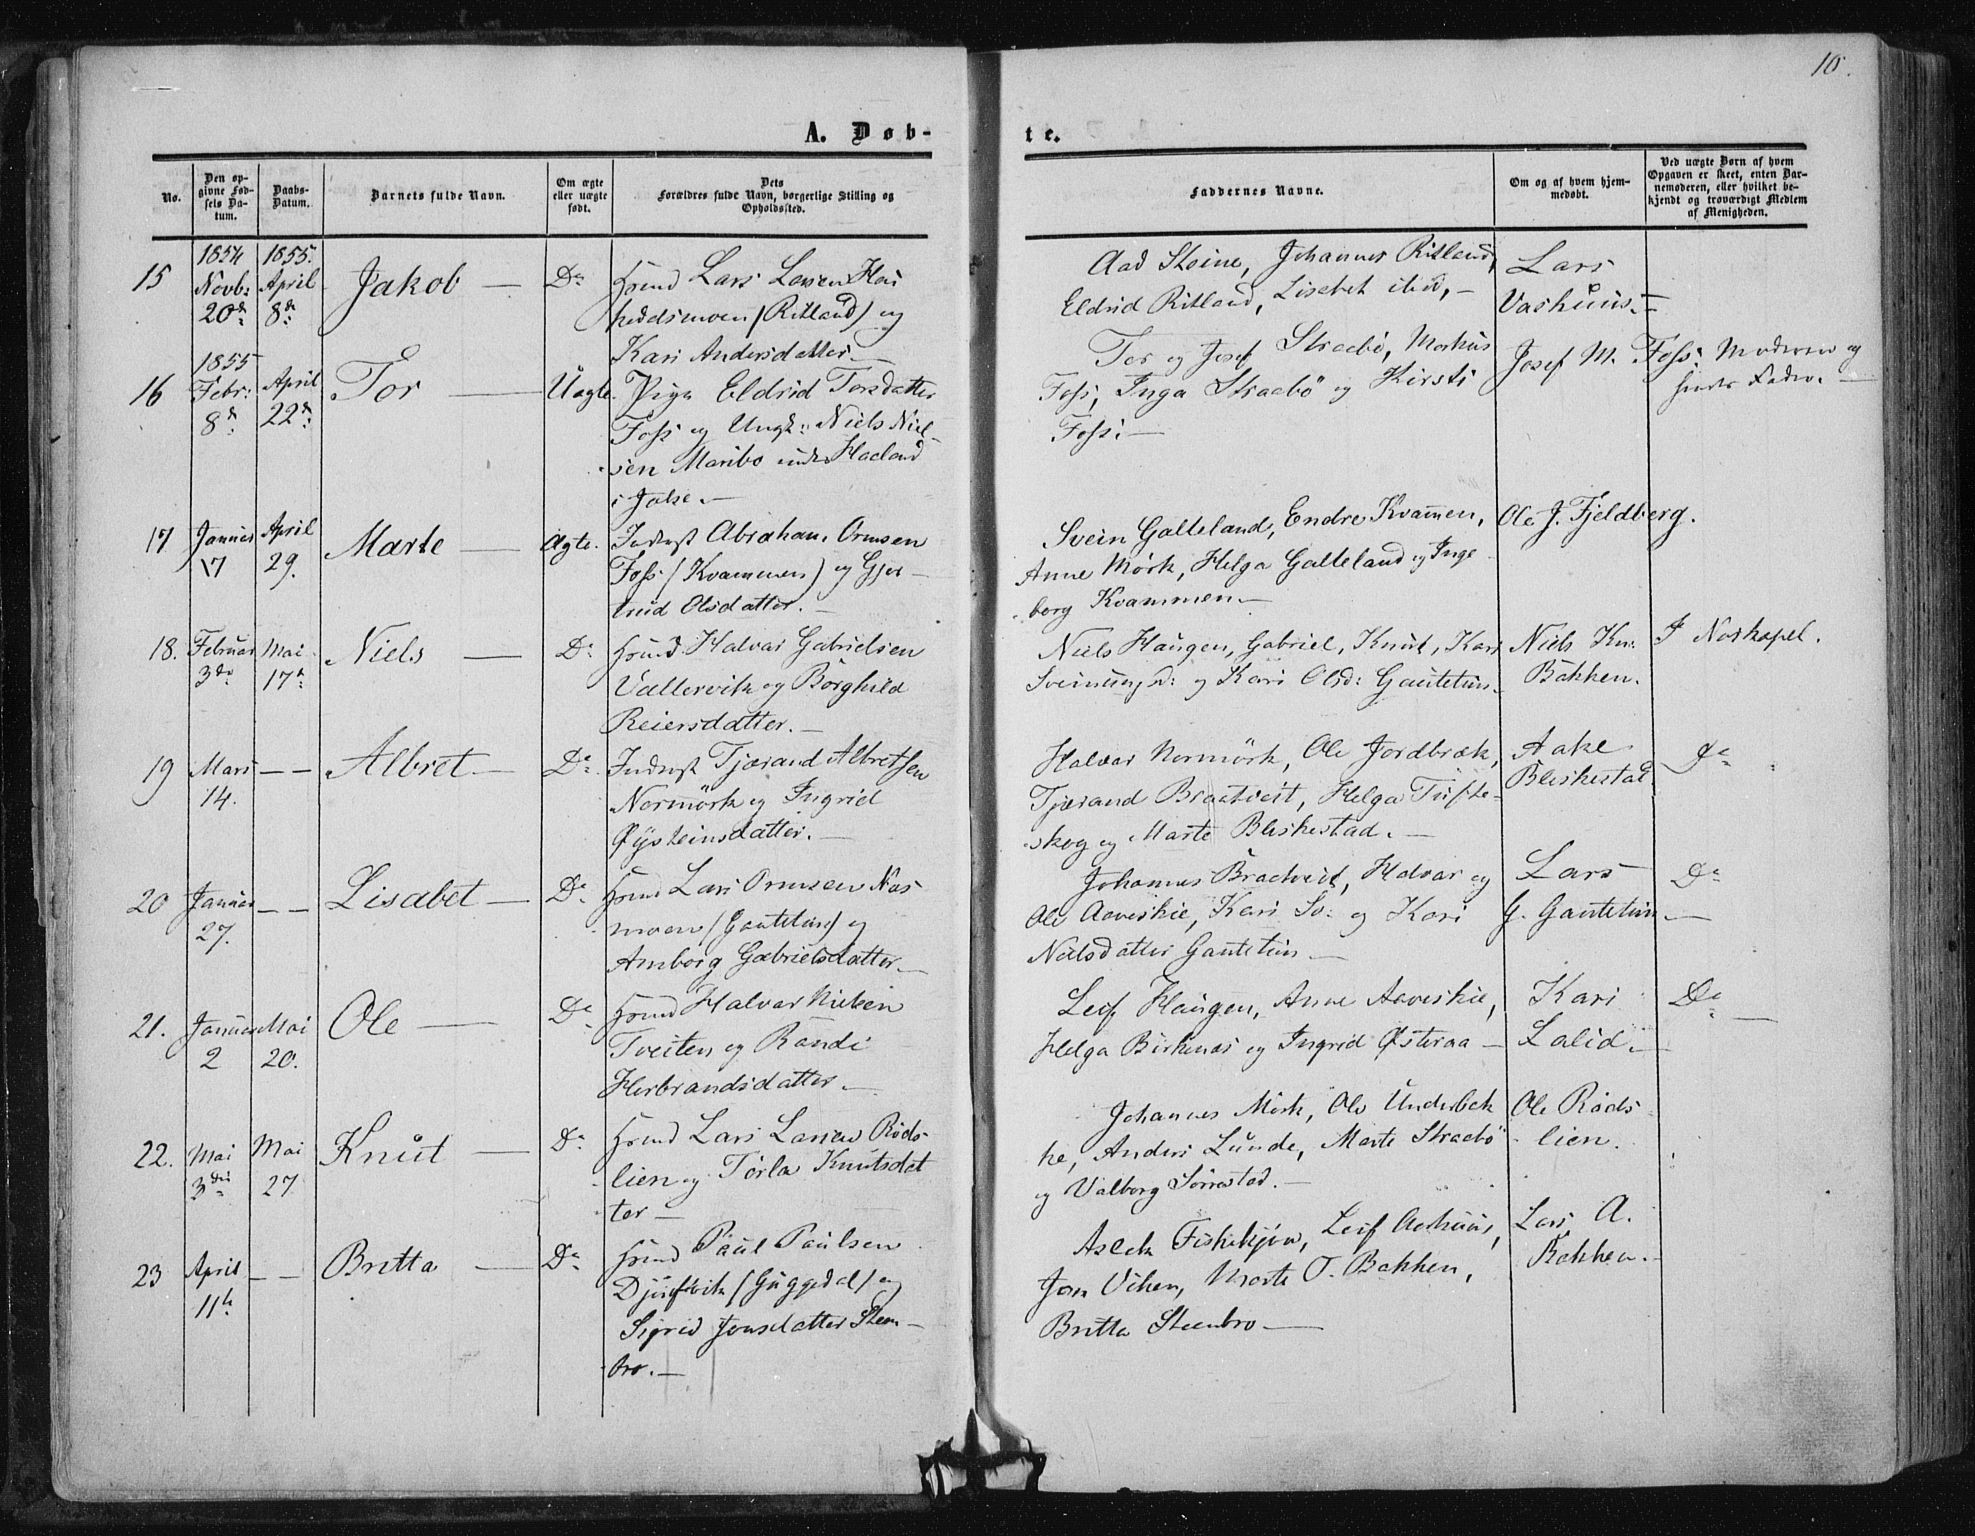 10.
A. Døb-
te.
No.
Den op-
givne Fød-
sels Da-
tum.
Daabs-
Datum.
Barnets fulde Navn.
Om ægte
eller uægte
født.
Dets
Forældres fulde Navn, borgerlige Stilling og
Opholdssted.
Faddernes Navne.
Om og af hvem hjem-
medøbt.
Ved uægte Børn af hvem
Opgaven er skeet, enten Bar-
nemoderen, eller hvilket be-
kjendt og troværdigt Medlem
af Menigheden.
15
1854
Novb:
20de
1855.
April
8de
Jakob —
Do
Huusmd Lars Larsen
(Ritland) og
Kari Andersdatter —
Aad Steine, Johannes Ritland,
Eldrid Ritland, Lisabet ibid, —
Lars
Vashuus. —
16
1855
Febr:
8de
April
22de
Tor —
Uægte.
Pige Eldrid Torsdatter
Foss og Ungk: Niels Niel-
sen Maribo under Haeland
i Jelse. —
Tor og Josef Straebø, Markus
Foss, Inga Straebø og Kirsti
Foss. —
Josef M. Foss.
Moderen og
hendes Fader. —
17
Januar
17
April
29.
Marte —
Ægte.
Inderst Abraham Ormsen
Foss (Kvammen) og Gjer-
trud Olsdatter. —
Svein Galteland, Endre Kvammen,
Anne Mørk, Helga Galteland og Inge-
borg Kvammen —
Ole J. Fjeldberg.
18.
Februar
3die
Mai
17de
Niels —
Do
Huusmd Halvar Gabrielsen
Vallervik og Borghild
Reiersdatter. —
Niels Haugen, Gabriel, Knut, Kari
Sveinungsd: og Kari Olsd: Gautetun. —
Niels Kn:
Bakken.
I Naskapel.
19
Mars
14.
— —
Albret —
Do
Inderst Tjærand Albretsen
Normørk og Ingrid
Øysteinsdatter. —
Halvar Normørk, Ole Jordbræk,
Tjærand Bratveit, Helga Tufte-
skog og Marte Bleskestad. —
Aake
Bleskestad
Do
20
Januar
27.
— —
Lisabet —
Do
Huusmd Lars Ormsen Nas-
moen (Gautetun) og
Amborg Gabrielsdatter —
Johannes Bratveit, Halvar og
Ole Aaveskie, Kari Sv: og Kari
Nielsdatter Gautetun —
Lars
G. Gautetun —
Do
21.
Januar
2
Mai
20.
Ole —
Do
Huusmd Halvar Nielsen
Tveiten og Randi
Herbrandsdatter —
Leif Haugen, Anne Aaveskie,
Helga Birkenes og Ingrid Østeraa —
Kari
Lalid. —
Do
22.
Mai
3die
Mai
27
Knut —
Do
Huusmd Lars Larsen Røds-
lien og Torla Knutsdat-
ter —
Johannes Mørk, Ole Underbak-
ke, Anders Lunde, Marte Straebø
og Valborg Sørrestad. —
Ole Røds-
lien.
23
April
11te
— —
Britta —
Do
Huusmd Paul Paulsen
Djupevik (Guggedal) og
Sigrid Jonsdatter Steen-
bro. —
Aslak Fiskekjøn, Leif Aarhuus,
Jon Viken, Marte T. Bakken,
Britta Steenbro —
Lars A.
Bakken. —